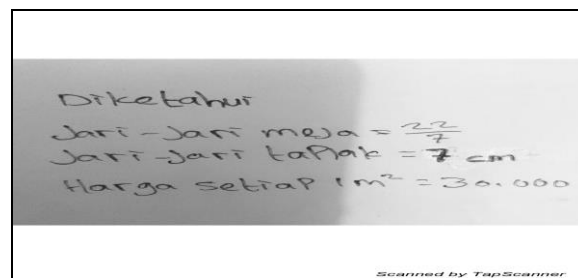 Diketahui
Jari-Jari meja = 22/7
Jari-Jari taplak = 7 cm
Harga setiap 1 m² = 30.000
Scanned by TapScanner